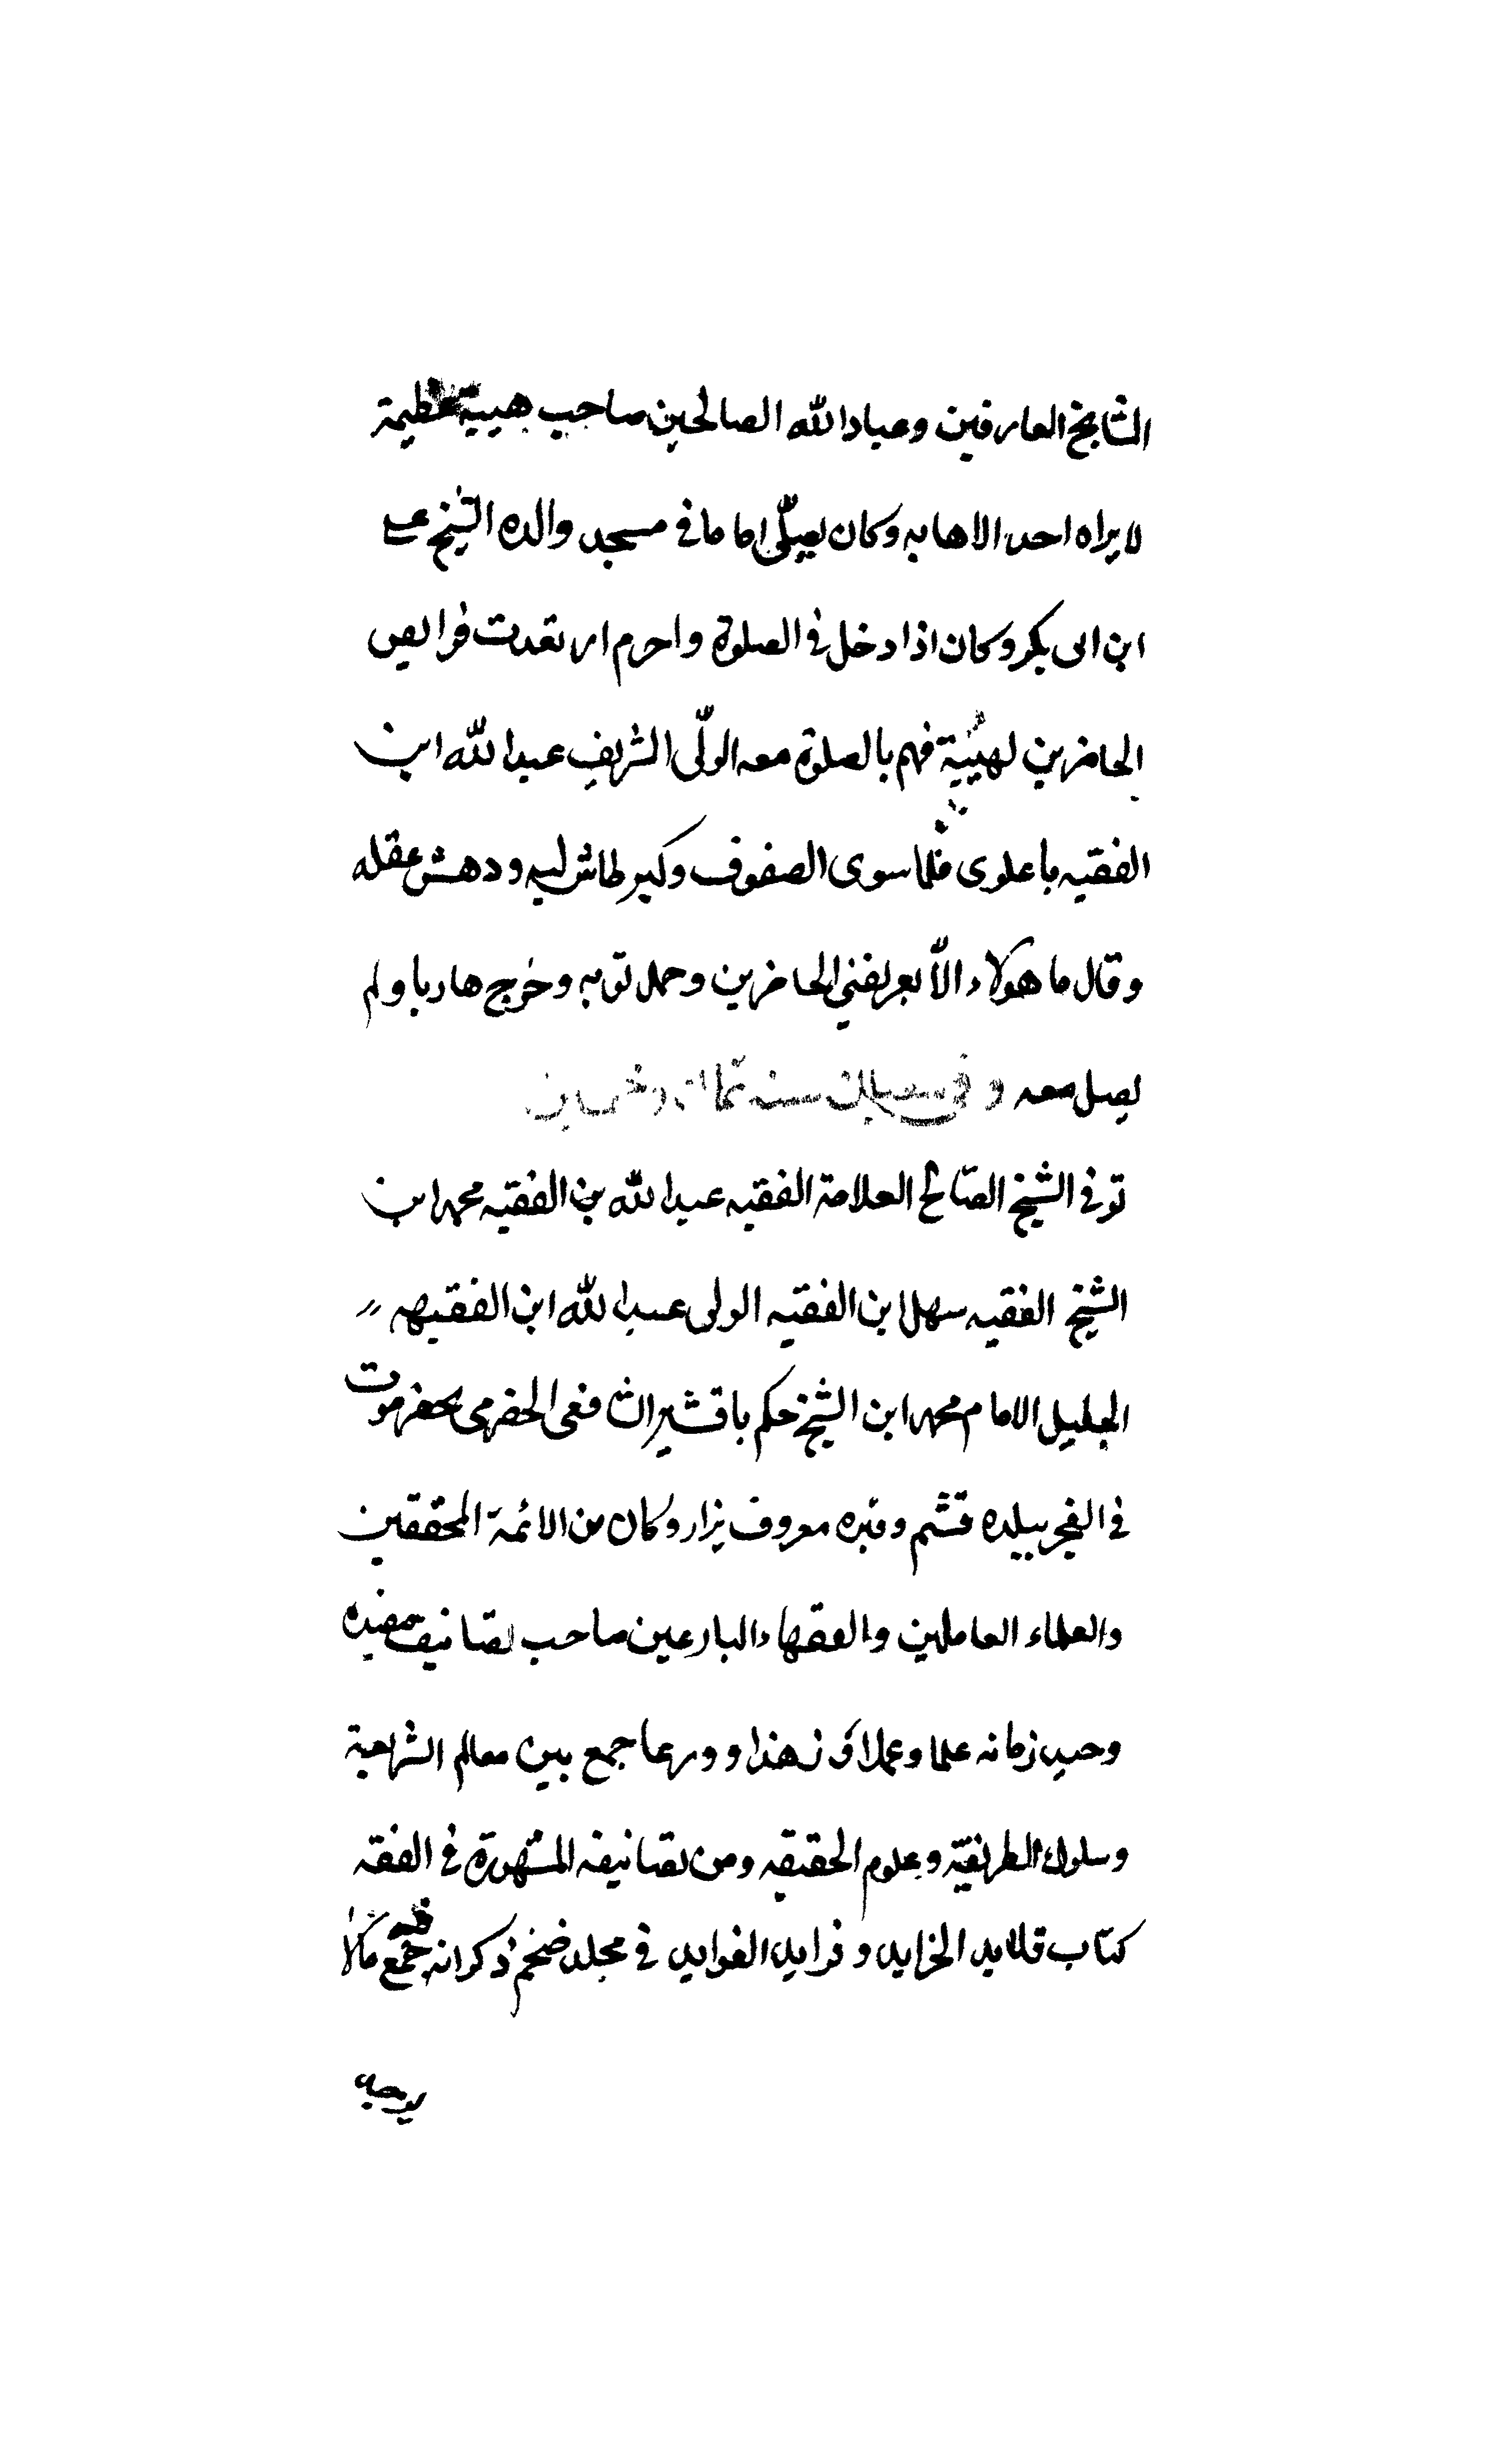 المشايخ العارفين وعباد الله الصالحين صاحب هيبة عظيمة
لا يراه احد الا هابه وكان يصلّى اماما فى مسجد والده الشيخ على
ابن ابى بكر وكان اذا دخل فى الصلوة واحرم ارتعدت فرايص
الحاضرين لهيبة فهم بالصلوة معه الولّى الشريف عبدالله ابن
الفقيه باعلوى فلما سوى الصفوف وكبر طاش لبه ودهش عقله
وقال ما هولاء الاّ يعر لفنى الحاضرين وحمل ثوبه وخرج هاربا ولم
يصل معه وفى سنة
توفى الشيخ الصّالح العلامة الفقيه عبدالله بن الفقيه محمد ابن
الشيخ الفقيه سهل ابن الفقيه الولى عبدالله ابن الفقيهه
الجليل الامام محمد ابن الشيخ حكم باقشير الشافعى الحضرمى بحضرموت
فى الفجر ببلده قشم وقبره معروف يزار وكان من الائمة المحققين
والعلماء العاملين والفقهاء البارعين صاحب تصانيف مفيده
وحيد زمانه علما وعملا و زهدا وورعا جمع بين معالم الشريعة
وسلوك الطريقة وعلوم الحقيقه ومن تصانيفه المشهورة فى الفقه
كتاب قلايد الخرايد وفرايد الفوايد فى مجلد ضخم ذكر انه جمع فيه مالا
يوجد